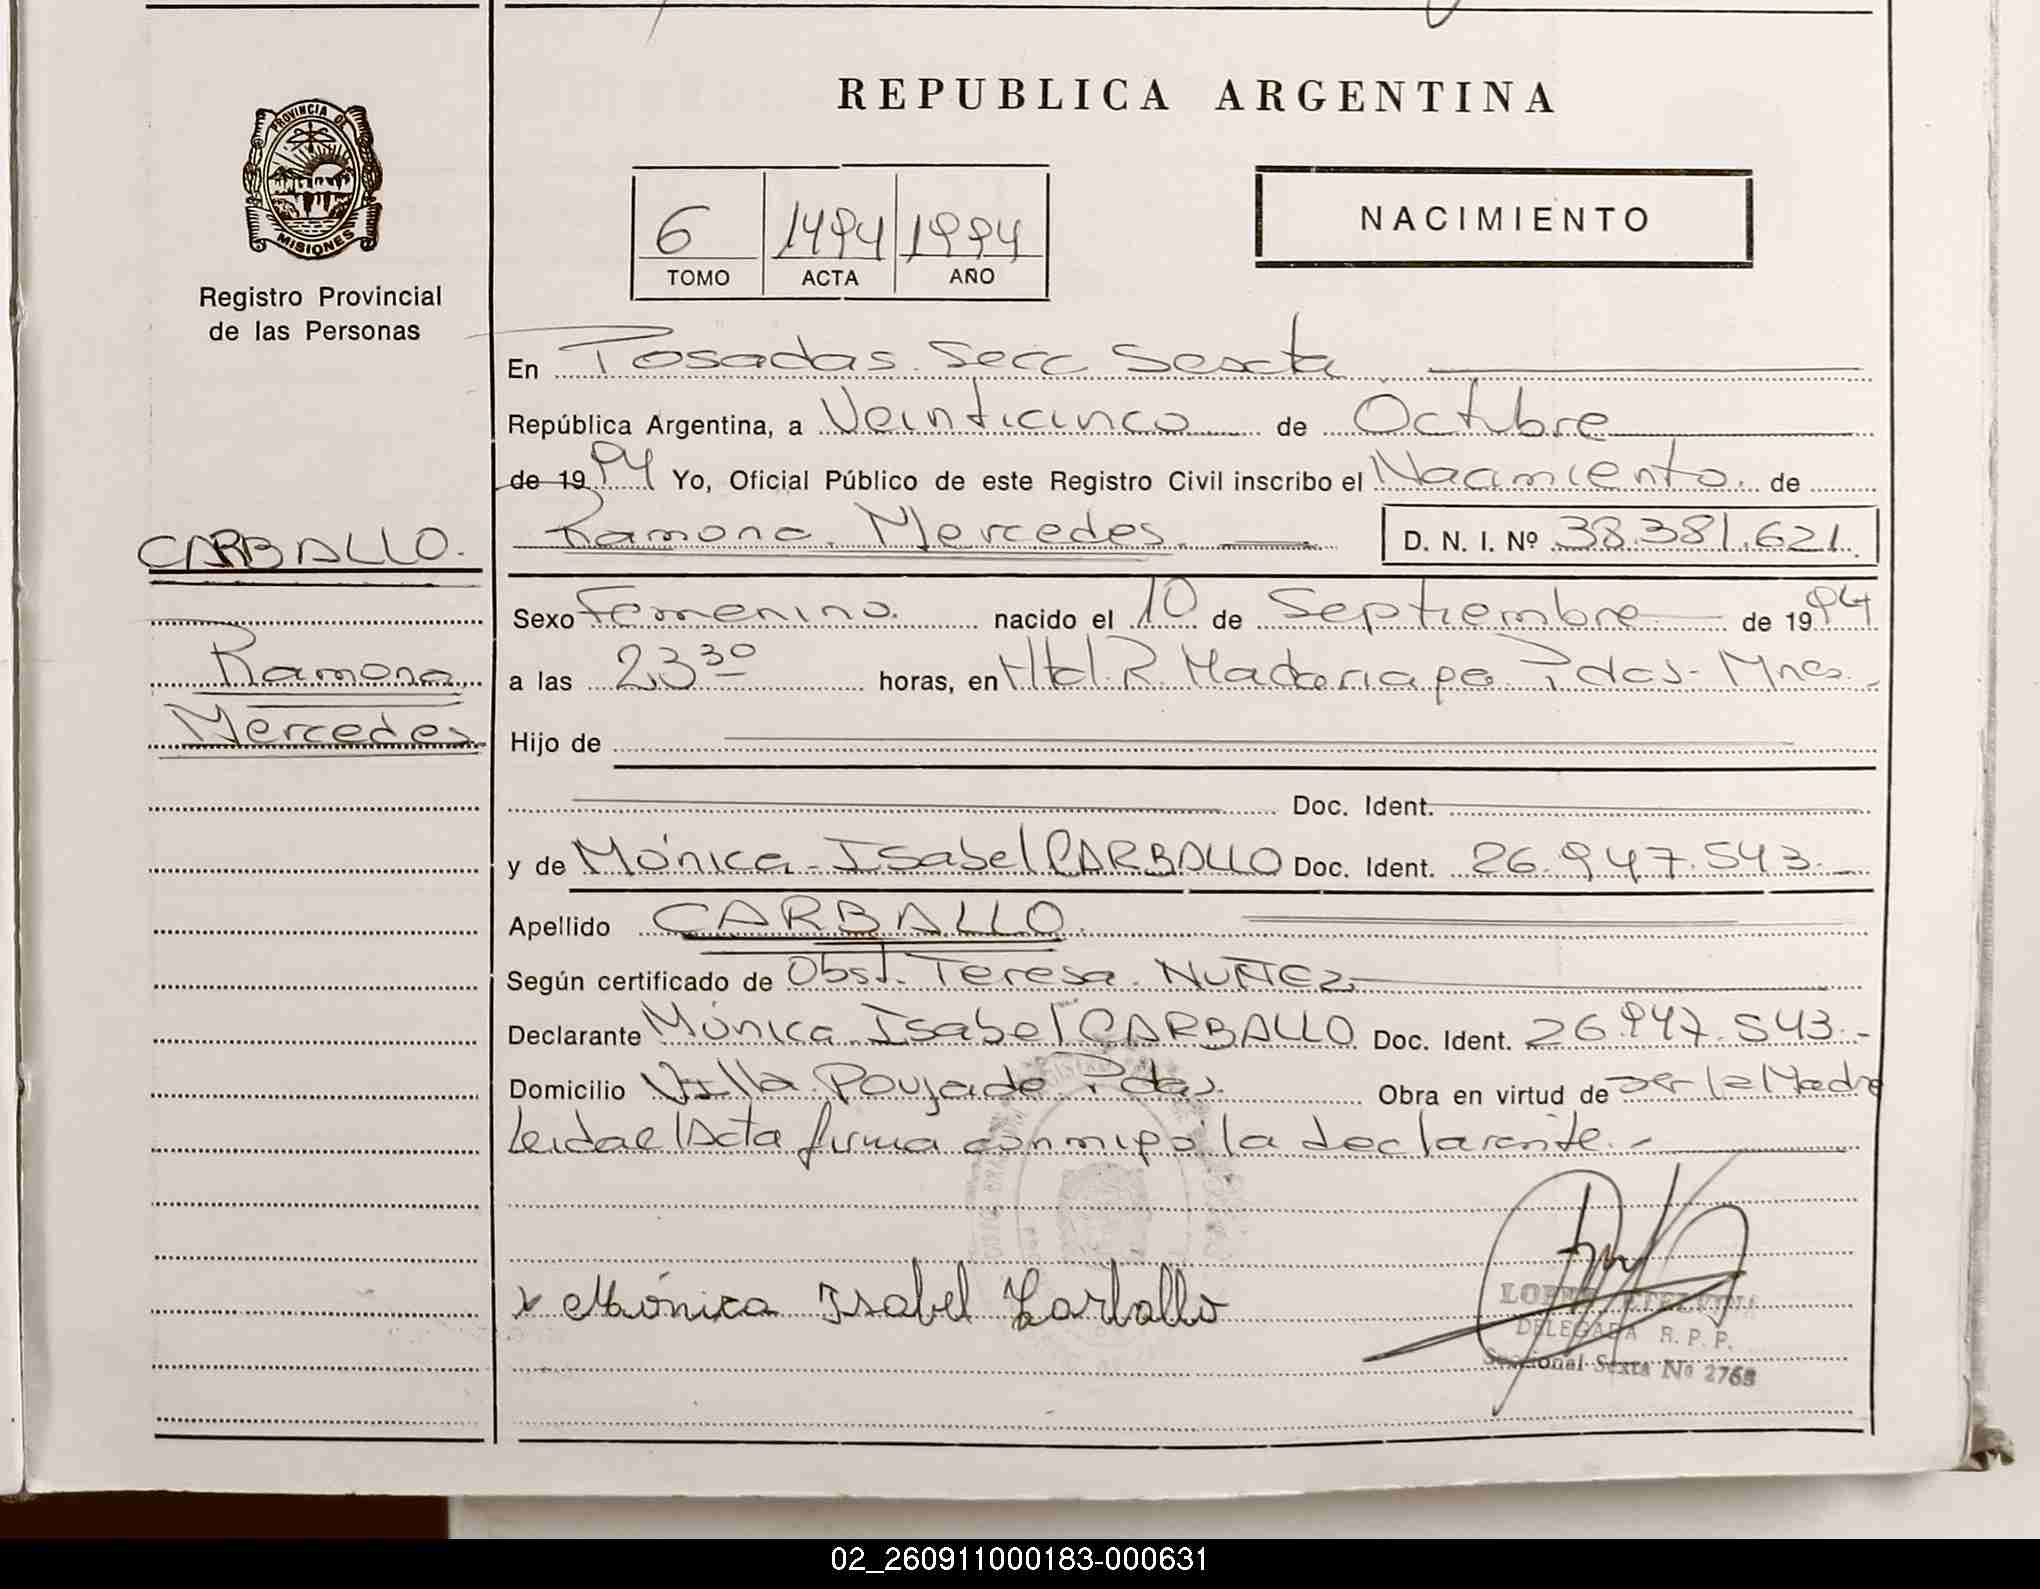 REPUBLICA ARGENTINA
PROVINCIA DE
MISIONES
Registro Provincial
de las Personas
6 1494 1994
TOMO ACTA AÑO
NACIMIENTO
En Posadas. Secc Sexta
República Argentina, a Veinticinco de Octubre
de 1994 Yo, Oficial Público de este Registro Civil inscribo el Nacimiento. de
CARBALLO.
Ramona Mercedes
Ramona. Mercedes. D. N. I. Nº 38.381.621.
Sexo Femenino. nacido el 10 de Septiembre de 1994
a las 23 30 horas, en Htal. R. Madariaga Pdas- Mnes.-
Hijo de
Doc. Ident.
y de Mónica-Isabel CARBALLO Doc. Ident. 26.947.543.
Apellido CARBALLO.
Según certificado de Obst. Teresa. NUÑEZ
Declarante Mónica Isabel CARBALLO Doc. Ident. 26.947.543.-
Domicilio Villa. Poujade Pdas. Obra en virtud de ser la Madre
Leida el Acta firma conmigo la declarante.-
x Mónica Isabel Carballo
DELEGADA R. P. P.
Seccional Sexta Nº 2768
02_260911000183-000631